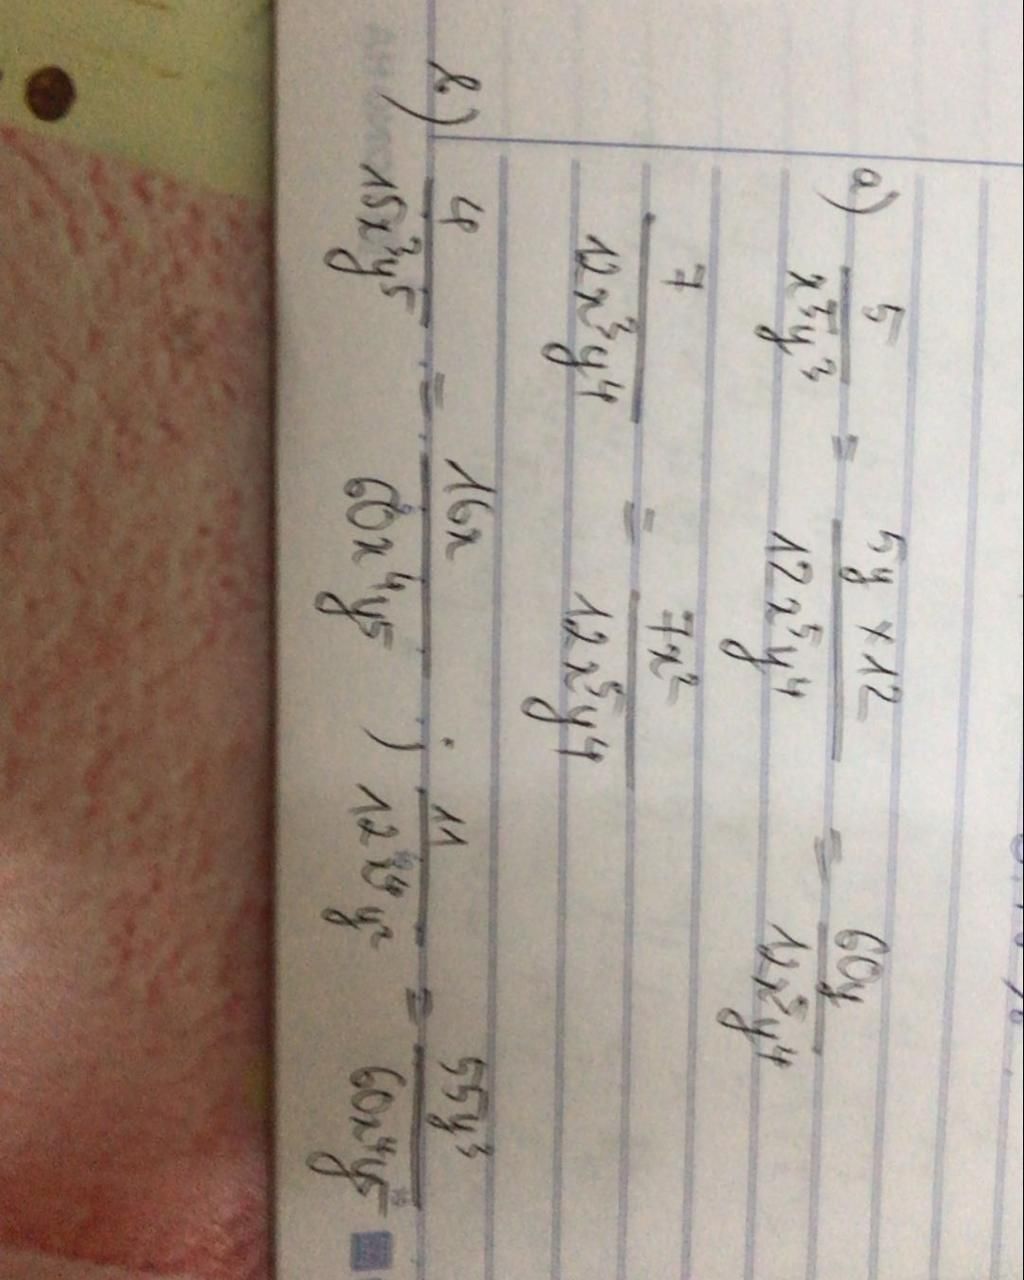 a) 5/x⁵y³ = 5y × 12/12x⁵y⁴ = 60y/12x⁵y⁴
7/12x³y⁴ = 7x²/12x⁵y⁴
b) 4/15x³y⁵ = 16x/60x⁴y⁵ ; 11/12x⁴y² = 55y³/60x⁴y⁵